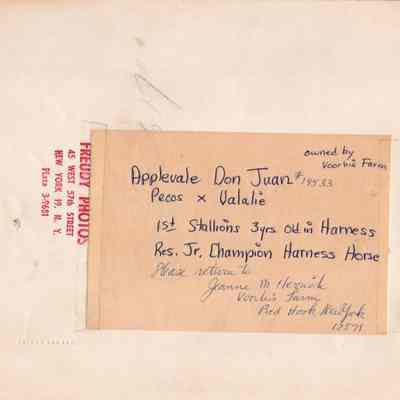 FREUDY PHOTOS
45 WEST 57th STREET
NEW YORK 19, N. Y.
PLaza 3-7661
owned by
Voorhis Farm
Applevale Don Juan #19533
Pecos x Valalie
1st Stallions 3yrs old in Harness
Res. Jr. Champion Harness Horse
Please return to
Jeanne M
Voorhis Farm
Red Hook New York
12571